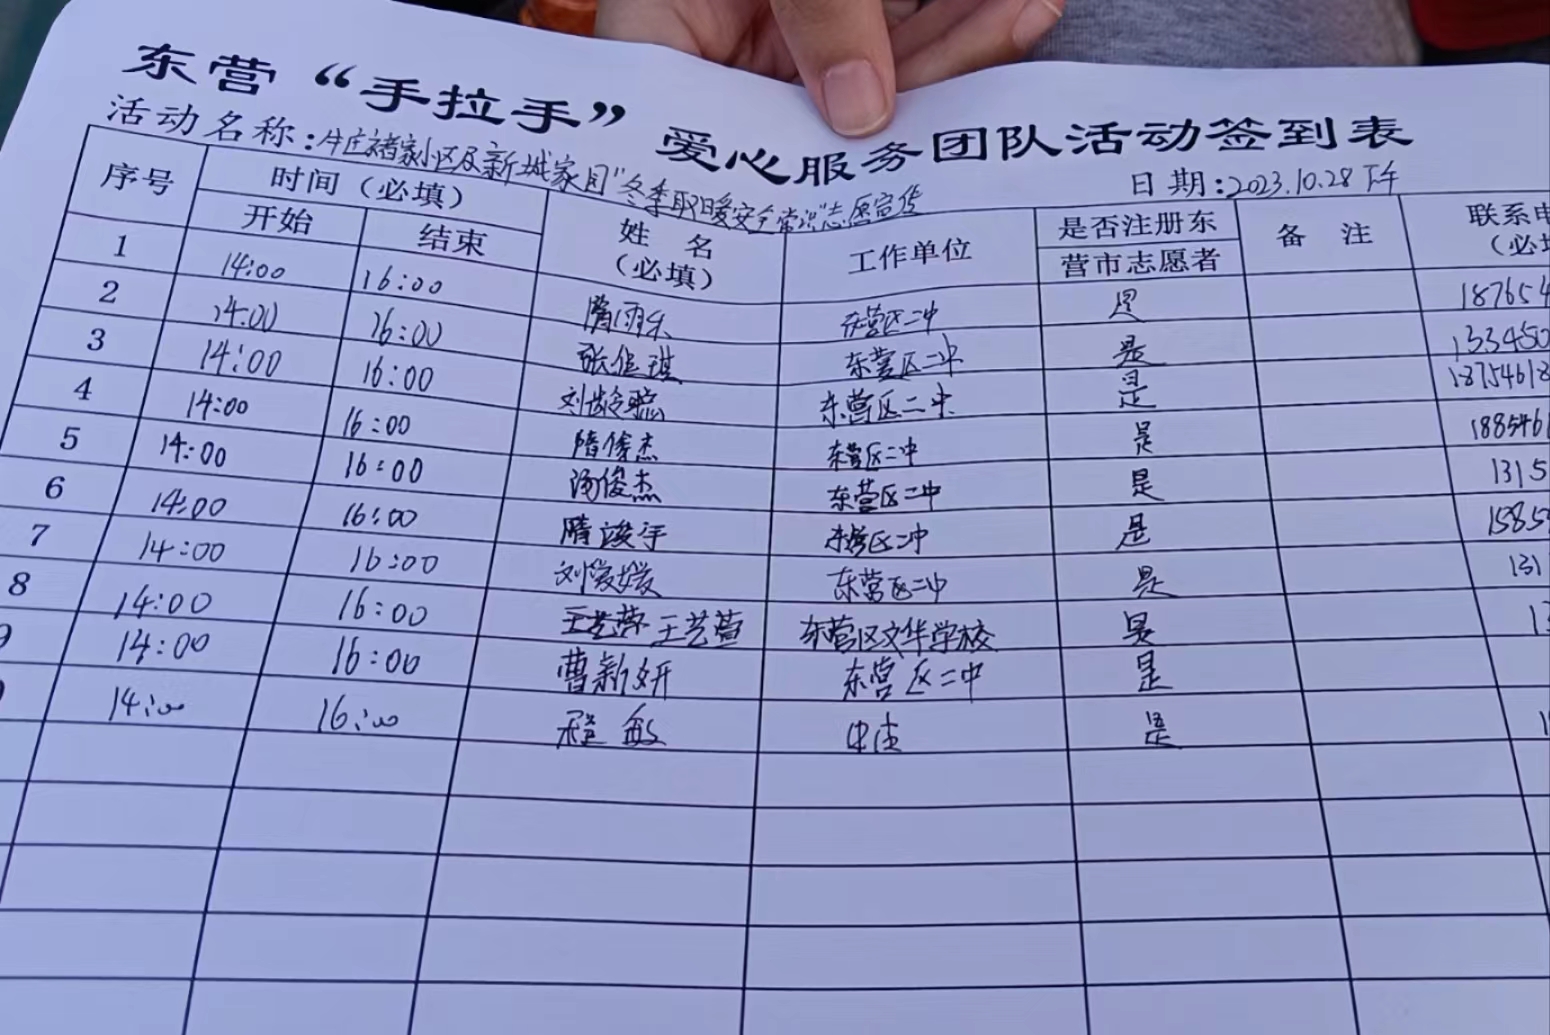 东营“手拉手”爱心服务团队活动签到表
活动名称：牛庄褚家小区及新城家园“冬季取暖安全常识”志愿宣传
日期：2023.10.28下午
序号 时间（必填） 姓名（必填） 工作单位 是否注册东营市志愿者 备注 联系电
开始 结束 （必
1 14:00 16:00 隋雨乐 东营区二中 是 187654
2 14:00 16:00 张佳琪 东营区二中 是 133450
3 14:00 16:00 刘 东营区二中 是 18754618
4 14:00 16:00 隋俊杰 东营区二中 是 1885461
5 14:00 16:00 汤俊杰 东营区二中 是 1315
6 14:00 16:00 隋 东营区二中 是 1585
7 14:00 16:00 刘媛媛 东营区二中 是 131
8 14:00 16:00 王艺萱 东营区文华学校 是 1
9 14:00 16:00 曹新妍 东营区二中 是
14:00 16:00 程敏 是 1